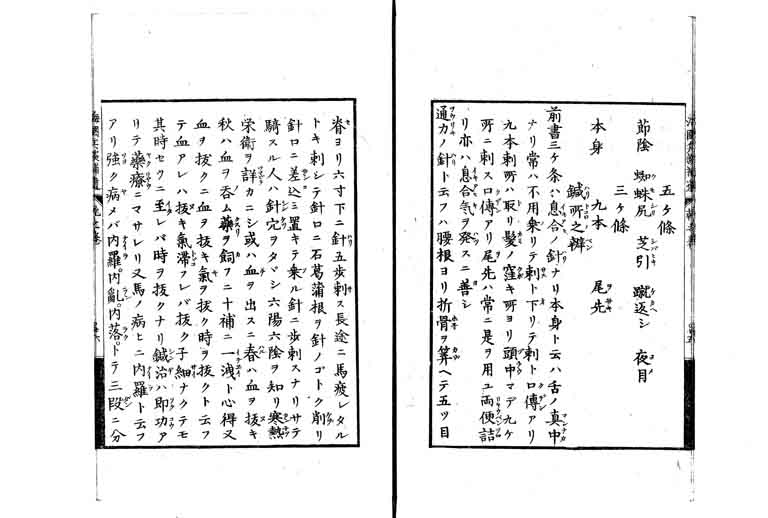 五ヶ條
節陰 蜘蛛尻 芝引 蹴返シ 夜目
三ヶ條
本身 九本 尾先
鍼所之辨
前書三ケ条ハ息合ノ針ナリ本身ト云ハ舌ノ真中
ナリ常ハ不用乗リテ刺ト下リテ刺トロ傳アリ
九本刺所ハ取リ髪ノ窪キ所ヨリ頭中マデ九ケ
所ニ刺スロ傳アリ尾先ハ常ニ是ヲ用ユ両便詰
リ亦ハ息合気ヲ発スニ善シ
通力ノ針ト云フハ腰根ヨリ折骨ヲ算ヘテ五ツ目
脊ヨリ六寸下ニ針五歩刺ス長途ニ馬疲レタル
トキ刺シテ針口ニ石葛蒲根ヲ針ノゴトク削リ
針口ニ差込ミ置キテ乗ル針ニ歩刺スナリサテ
騎スル人ハ針穴ヲタヾシ六陽六陰ヲ知リ寒熱
栄衛ヲ詳カニシ或ハ血ヲ出スニ春ハ血ヲ抜キ
秋ハ血ヲ呑ム藥ヲ飼フニ十補ニ一洩ト心得又
血ヲ抜クニ血ヲ抜キ氣ヲ抜ク時ヲ抜クト云フ
テ血アレハ抜キ氣滞ヲレバ抜ク子細ナクテモ
其時セクニ至レバ時ヲ抜クナリ鍼治ハ即功ア
リテ藥療ニマサレリ又馬ノ病ヒニ内羅ト云フ
アリ強ク病メバ内羅。内亂。内落。トテ三段ニ分